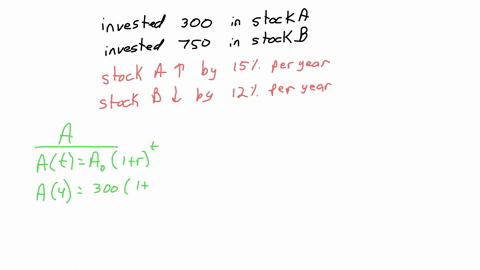 invested 300 in stock A
invested 750 in stock B
stock A ↑ by 15% per year
stock B ↓ by 12% per year
A
A(t) = A₀ (1+r)ᵗ
A(4) = 300 ( 1+